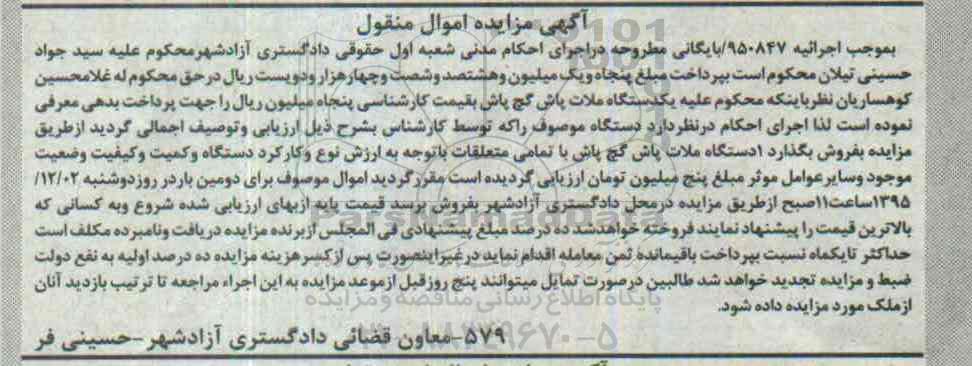 آگهی مزایده اموال منقول
بموجب اجرائیه ۹۵۰۸۴۷/بایگانی مطروحه دراجرای احکام مدنی شعبه اول حقوقی دادگستری آزادشهرمحکوم علیه سید جواد
حسینی تیلان محکوم است بپرداخت مبلغ پنجاه ویک میلیون وهشتصد وشصت وچهارهزار ودویست ریال درحق محکوم له غلامحسین
کوهساریان نظرباینکه محکوم علیه یکدستگاه ملات پاش گچ پاش بقیمت کارشناسی پنجاه میلیون ریال را جهت پرداخت بدهی معرفی
نموده است لذا اجرای احکام درنظردارد دستگاه موصوف راکه توسط کارشناس بشرح ذیل ارزیابی وتوصیف اجمالی گردید ازطریق
مزایده بفروش بگذارد ۱دستگاه ملات پاش گچ پاش با تمامی متعلقات باتوجه به ارزش نوع وکارکرد دستگاه وکمیت وکیفیت وضعیت
موجود وسایرعوامل موثر مبلغ پنج میلیون تومان ارزیابی گردیده است مقررگردید اموال موصوف برای دومین باردر روزدوشنبه ۱۲/۰۲/
۱۳۹۵ساعت۱۱صبح ازطریق مزایده درمحل دادگستری آزادشهر بفروش برسد قیمت پایه ازبهای ارزیابی شده شروع وبه کسانی که
بالاترین قیمت را پیشنهاد نمایند فروخته خواهدشد ده درصد مبلغ پیشنهادی فی المجلس ازبرنده مزایده دریافت ونامبرده مکلف است
حداکثر تایکماه نسبت بپرداخت باقیمانده ثمن معامله اقدام نماید درغیراینصورت پس ازکسرهزینه مزایده ده درصد اولیه به نفع دولت
ضبط و مزایده تجدید خواهد شد طالبین درصورت تمایل میتوانند پنج روزقبل ازموعد مزایده به این اجراء مراجعه تا ترتیب بازدید آنان
ازملک مورد مزایده داده شود.
۵۷۹-معاون قضائی دادگستری آزادشهر-حسینی فر
ParsNamadData
پایگاه اطلاع رسانی مناقصه ومزایده